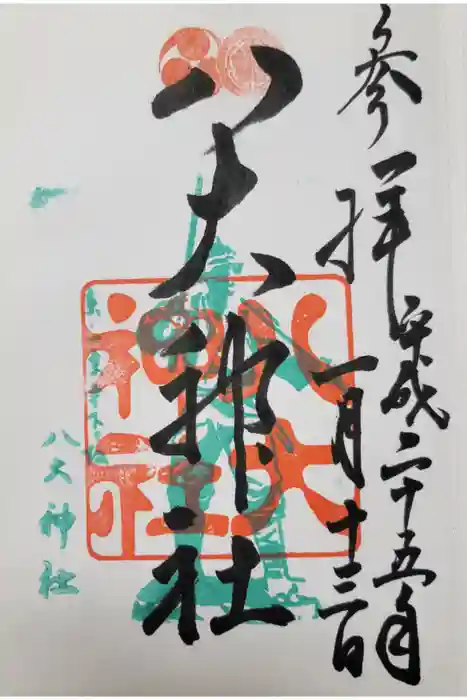 参拝
平成二十五年
一月十三日
八大神社
八大
神社
八大神社